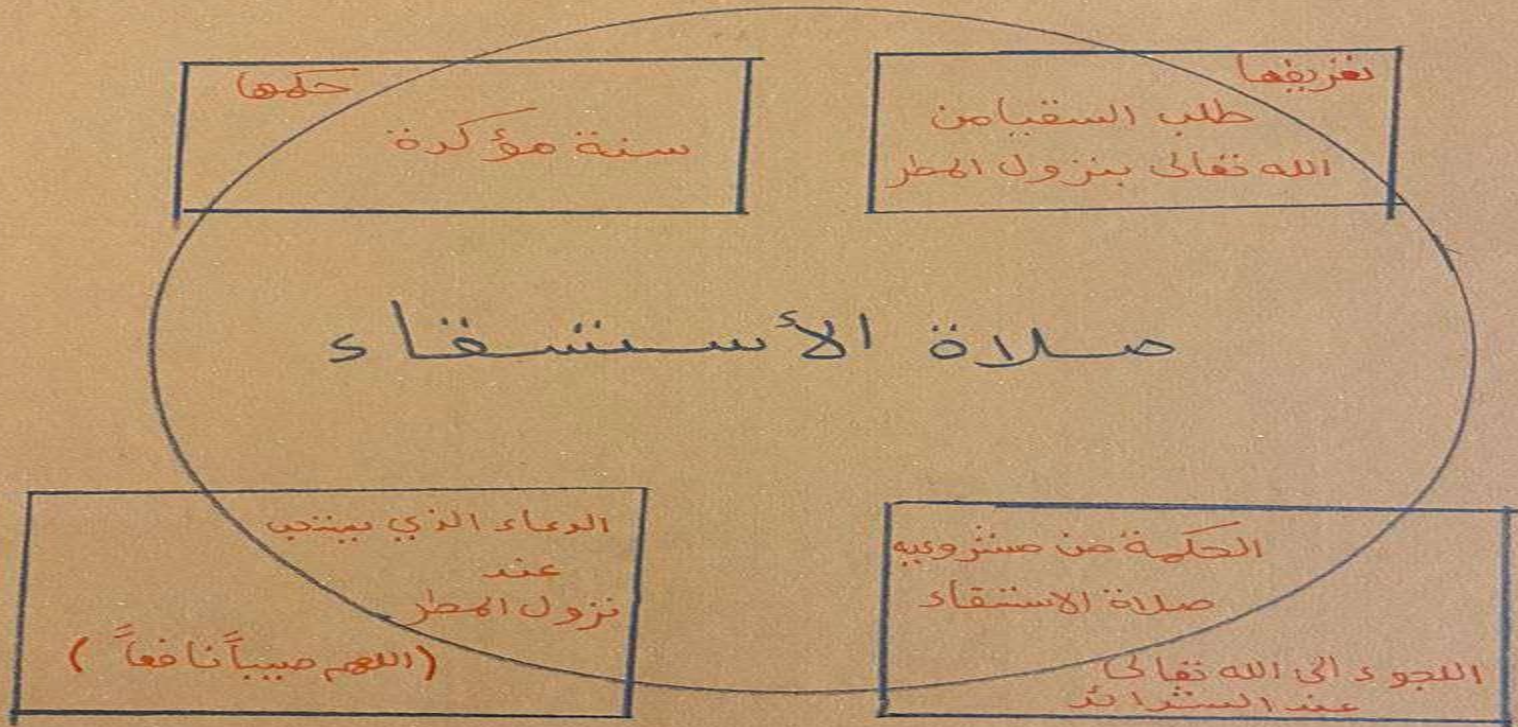 تعريفها
طلب السقيا من
الله تعالى بنزول المطر
حكمها
سنة مؤكدة
صلاة الأستسقاء
الحكمة من مشروعيه
صلاة الاستسقاء
اللجوء الى الله تعالى
عند الشدائد
الدعاء الذي يستحب
عند
نزول المطر
(اللهم صيباً نافعاً)